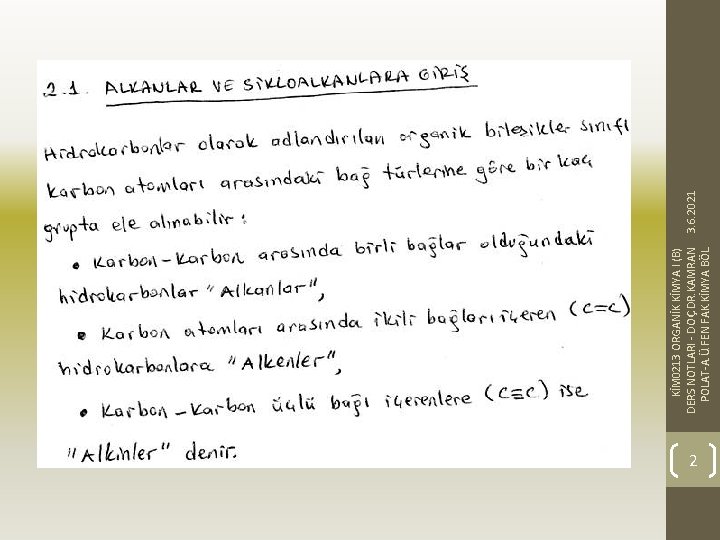 2.1. ALKANLAR VE SİKLOALKANLARA GİRİŞ
Hidrokarbonlar olarak adlandırılan organik bileşikler sınıfı
karbon atomları arasındaki bağ türlerine göre bir kaç
grupta ele alınabilir:
• Karbon-Karbon arasında birli bağlar olduğundaki
hidrokarbonlar "Alkanlar",
• Karbon atomları arasında ikili bağları içeren (C=C)
hidrokarbonlara "Alkenler",
• Karbon-Karbon üçlü bağı içerenlere (C≡C) ise
"Alkinler" denir.
KİM0213 ORGANİK KİMYA I (B)
DERS NOTLARI - DOÇ.DR.KAMRAN
POLAT-A.Ü.FEN FAK.KİMYA BÖL
3.6.2021
2